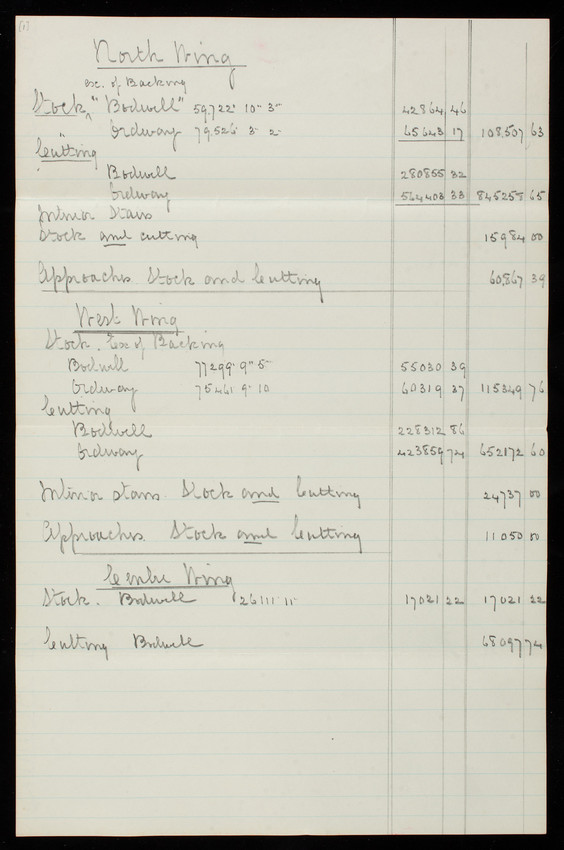 (1)
North Wing
exc. of Backing
Stock ^ "Bodwell" 59,722' 10" 3" 42864 46
" Ordway 79,526' 3" 2" 65643 17 108,507 63
Cutting
Bodwell 280855 32
Ordway 564403 33 845258 65
Interior Stairs
Stock and cutting 15984 00
Approaches Stock and Cutting 60,867 39
West Wing
Stock. Ex of Backing
Bodwell 77299' 9" 5" 55030 39
Ordway 75461 9" 10 60319 37 115349 76
Cutting
Bodwell 228312 86
Ordway 423859 74 652172 60
Interior stairs Stock and Cutting 24737 00
Approaches. Stock and Cutting 11050 00
Centre Wing
Stock. Bodwell 26111' 11" 17021 22 17021 22
Cutting Bodwell 68097 74